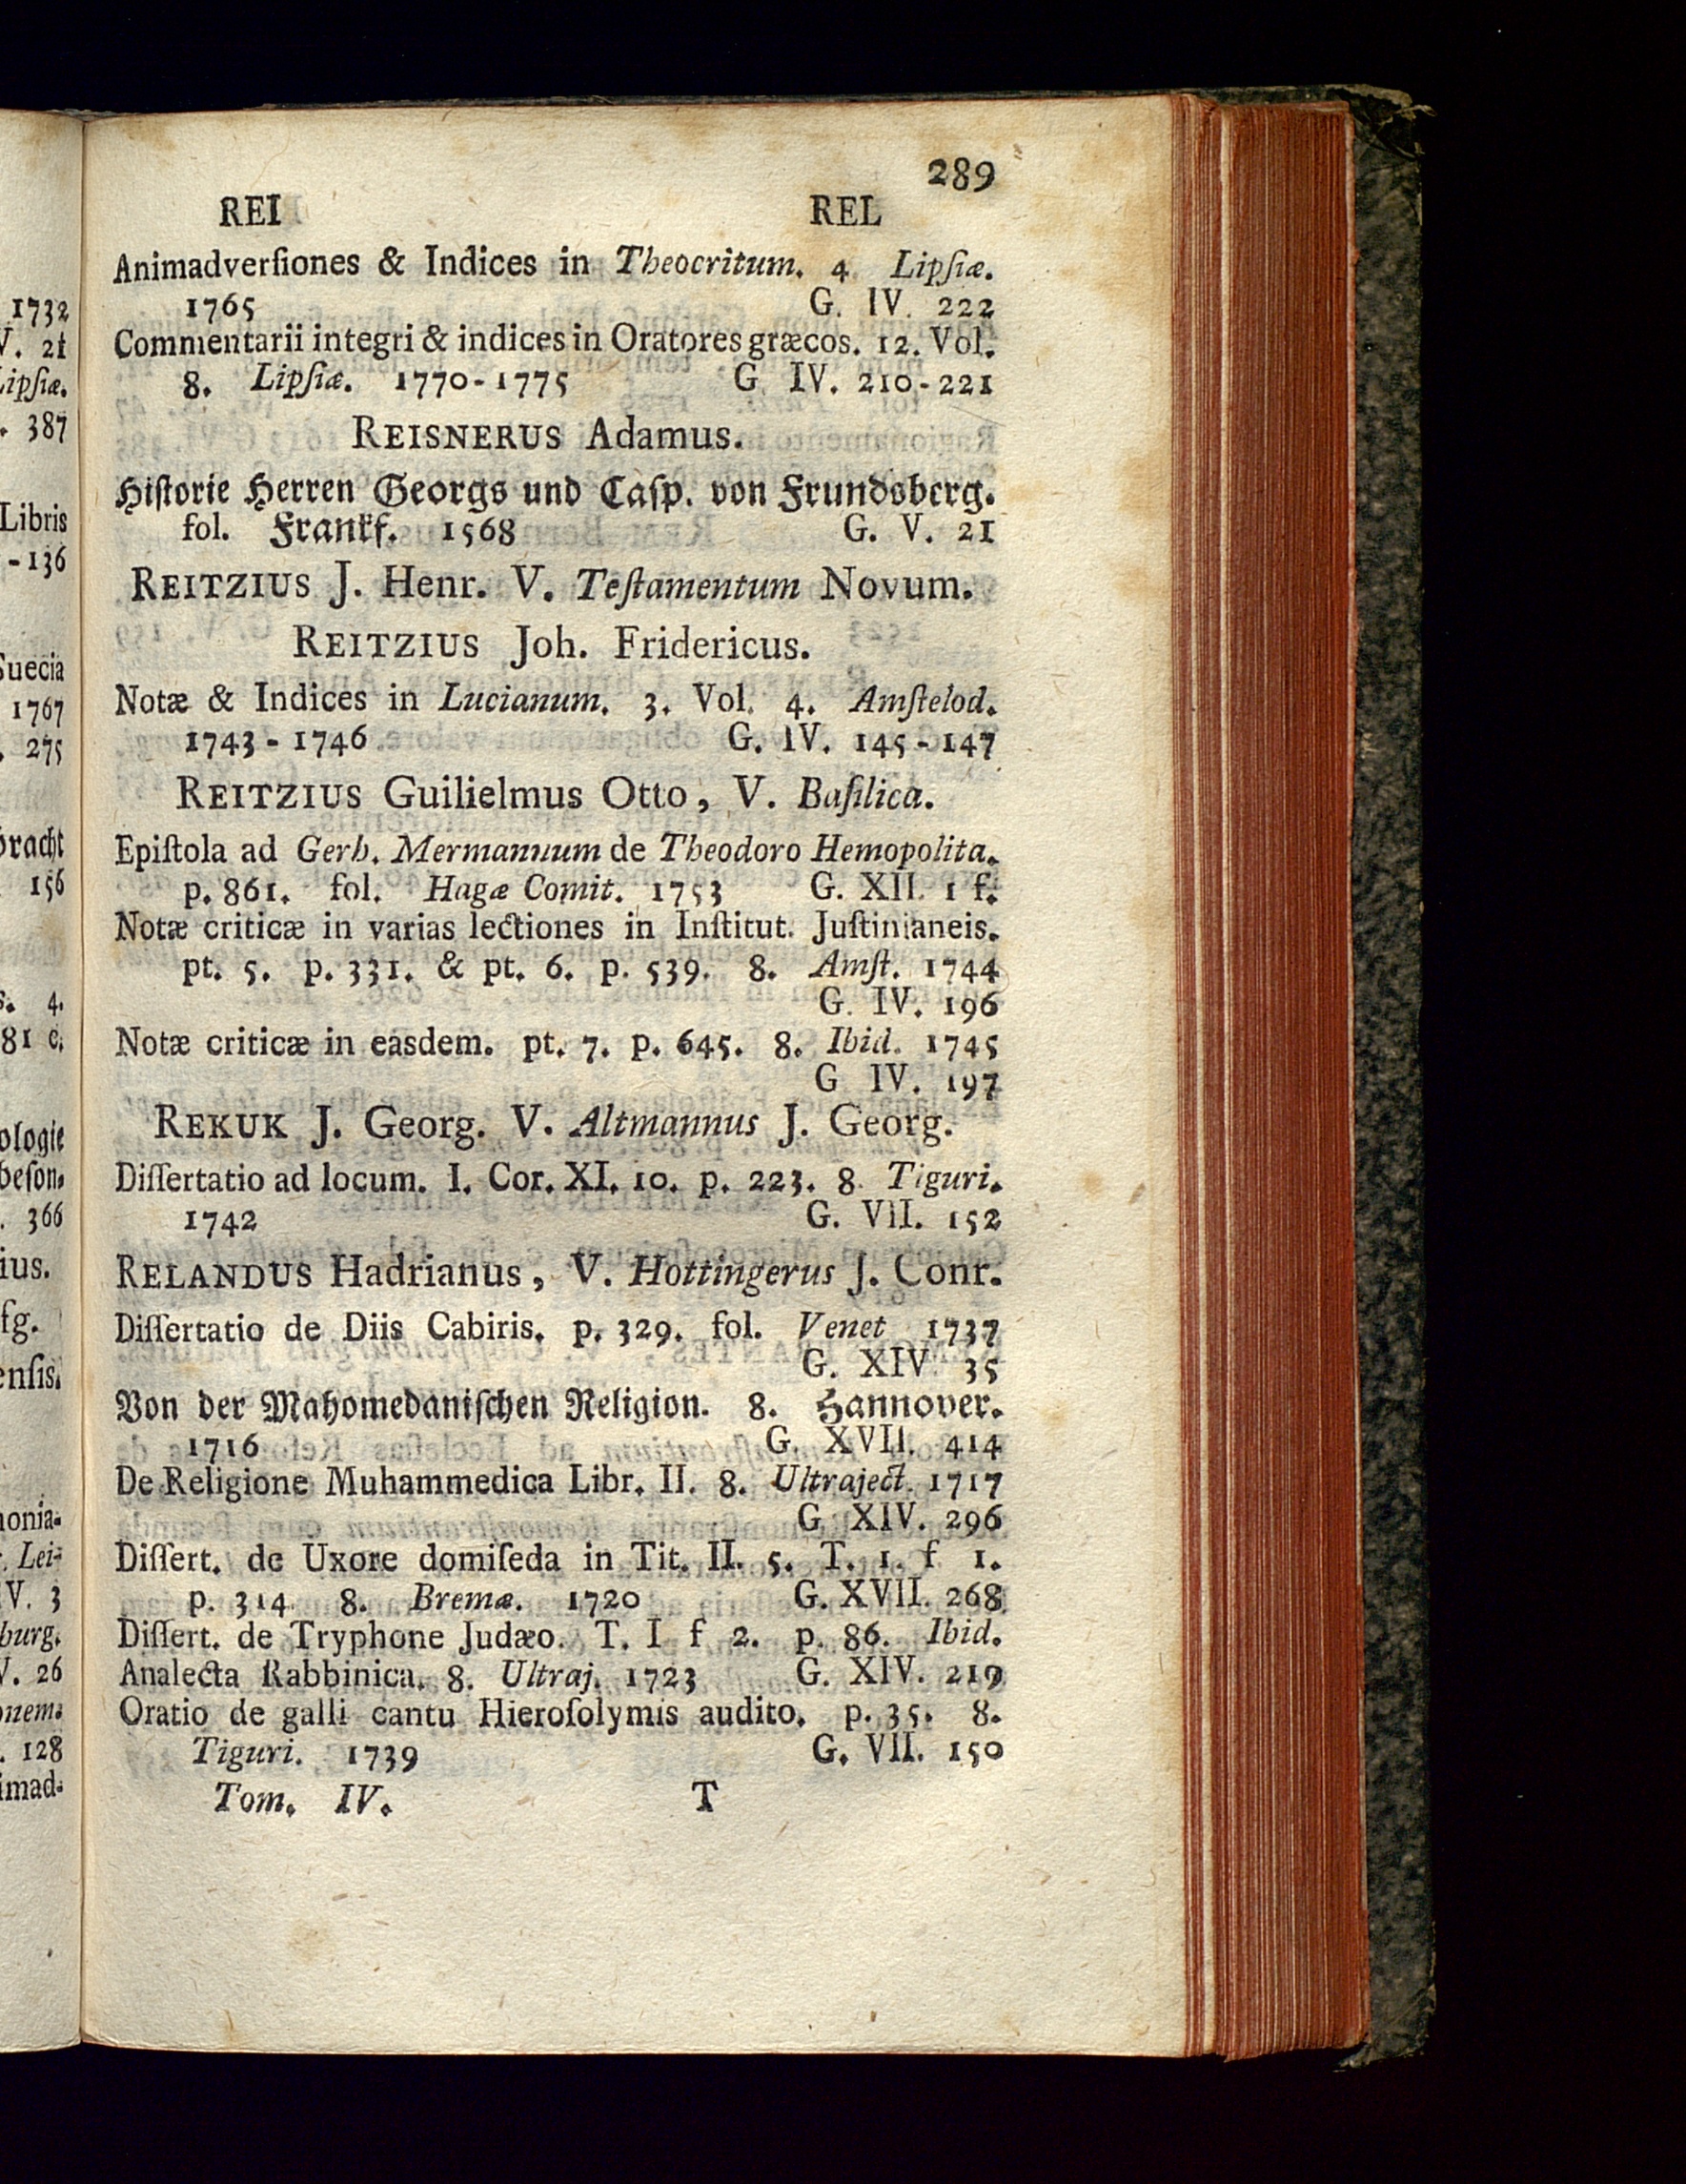 289
REI REL
Animadverſiones & Indices in Theocritum. 4 Lipſiæ.
1765 G. IV. 222
Commentarii integri & indices in Oratores græcos. 12. Vol.
8. Lipſiæ. 1770-1775 G IV. 210-221
REISNERUS Adamus.
Hiſtorie Herren Georgs und Caſp. von Frundsberg.
fol. Frankf. 1568 G. V. 21
REITZIUS J. Henr. V. Teſtamentum Novum.
REITZIUS Joh. Fridericus.
Notæ & Indices in Lucianum. 3. Vol. 4. Amſtelod.
1743-1746 G. IV. 145-147
REITZIUS Guilielmus Otto, V. Baſilica.
Epiſtola ad Gerh. Mermannum de Theodoro Hemopolita.
p. 861. fol. Hagæ Comit. 1753 G. XII. 1 f.
Notæ criticæ in varias lectiones in Inſtitut. Juſtinianeis.
pt. 5. p. 331. & pt. 6. p. 539. 8. Amſt. 1744
G. IV. 196
Notæ criticæ in easdem. pt. 7. p. 645. 8. Ibid. 1745
G IV. 197
REKUK J. Georg. V. Altmannus J. Georg.
Diſſertatio ad locum. I. Cor. XI. 10. p. 223. 8. Tiguri.
1742 G. VII. 152
RELANDUS Hadrianus, V. Hottingerus J. Conr.
Diſſertatio de Diis Cabiris. p. 329. fol. Venet 1737
G. XIV 35
Von der Mahomedaniſchen Religion. 8. Hannover.
1716 G. XVII. 414
De Religione Muhammedica Libr. II. 8. Ultraject. 1717
G XIV. 296
Diſſert. de Uxore domiſeda in Tit. II. 5. T. 1. f 1.
p. 314 8. Bremæ. 1720 G. XVII. 268
Diſſert. de Tryphone Judæo. T. I f 2. p. 86. Ibid.
Analecta Rabbinica. 8. Ultraj. 1723 G. XIV. 219
Oratio de galli cantu Hieroſolymis audito. p. 35. 8.
Tiguri. 1739 G. VII. 150
Tom. IV. T
1732
V. 21
Lipſiæ.
. 387
Libris
-136
Suecia
1767
. 275
bracht
156
s. 4.
81 c.
ologie
beſon-
. 366
ius.
fg.
enſis.
nonia-
. Lei-
IV. 3
burg.
V. 26
onem.
. 128
imad-